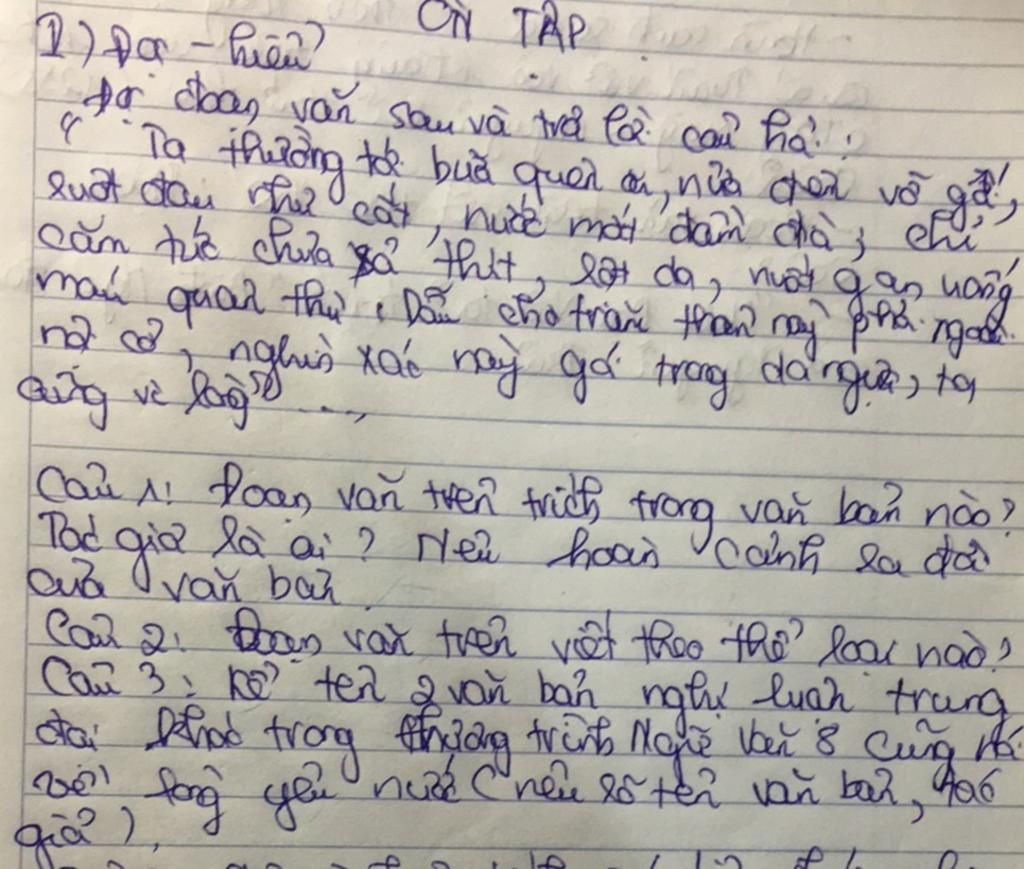 ÔN TẬP
I) Đọc - hiểu
Đọc đoạn văn sau và trả lời câu hỏi:
"Ta thường tới bữa quên ăn, nửa đêm vỗ gối,
ruột đau như cắt, nước mắt đầm đìa; chỉ
căm tức chưa xả thịt, lột da, nuốt gan uống
máu quân thù. Dẫu cho trăm thân này phơi ngoài
nội cỏ, nghìn xác này gói trong da ngựa, ta
cũng vui lòng" ...,
Câu 1: Đoạn văn trên trích trong văn bản nào?
Tác giả là ai? Nêu hoàn cảnh ra đời
của văn bản.
Câu 2: Đoạn văn trên viết theo thể loại nào?
Câu 3: Kể tên 2 văn bản nghị luận trung
đại khác trong chương trình Ngữ văn 8 cũng nói
về lòng yêu nước (nêu rõ tên văn bản, tác
giả).